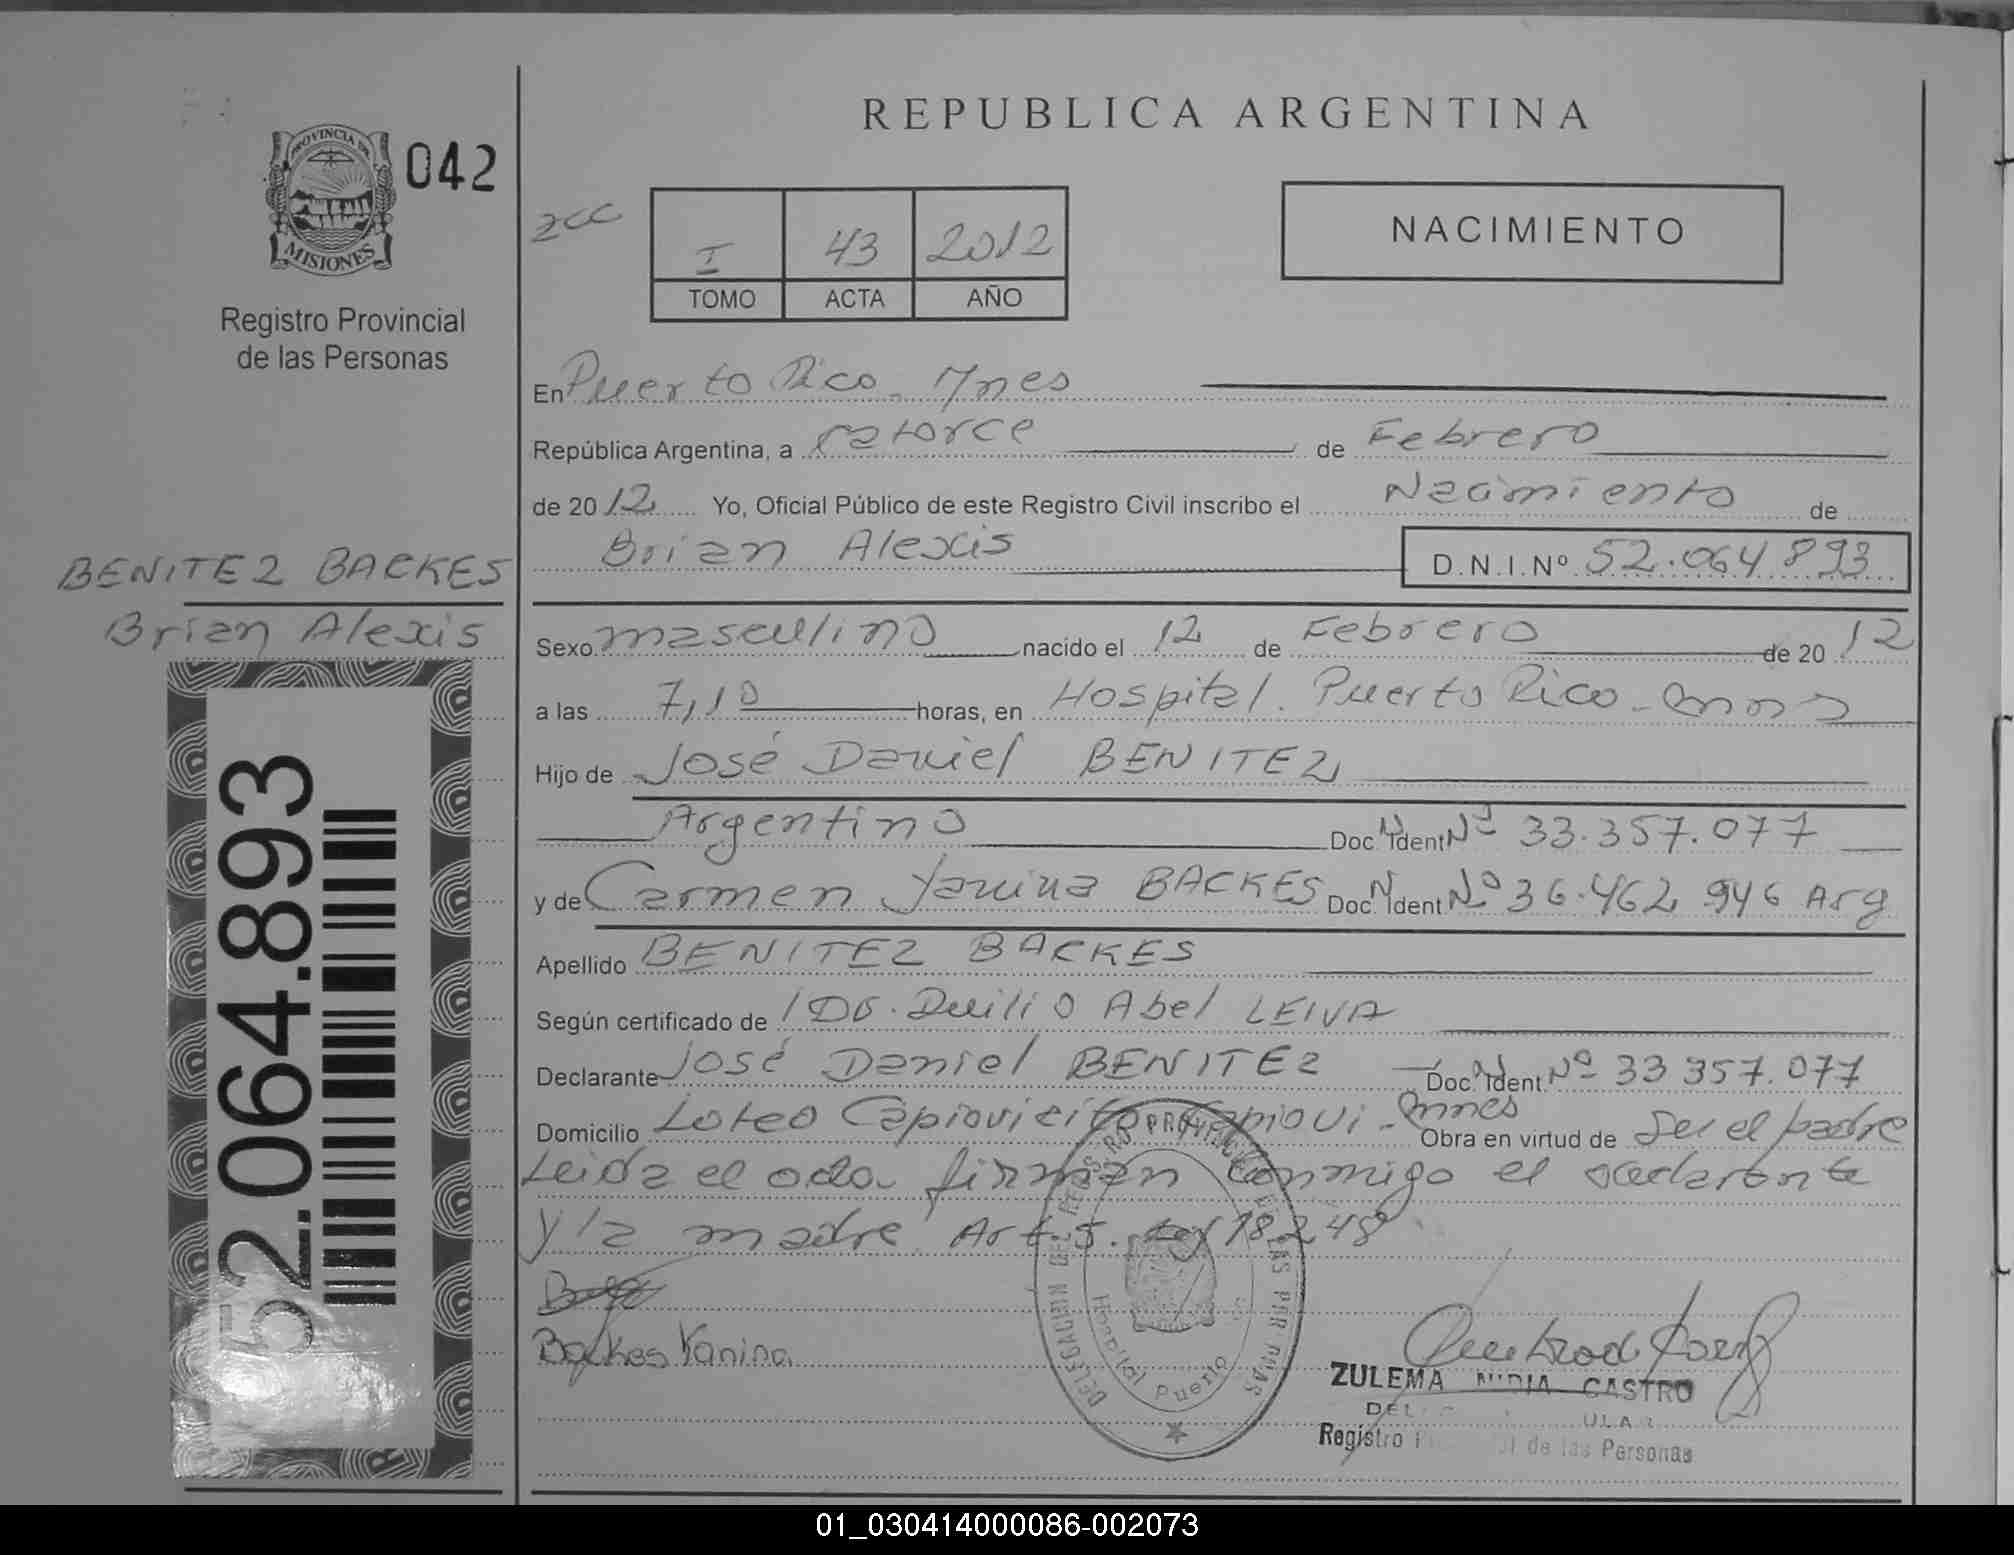 REPUBLICA ARGENTINA
PROVINCIA DE
MISIONES
042
Registro Provincial
de las Personas
zcc
I 43 2012
TOMO ACTA AÑO
NACIMIENTO
En Puerto Rico. Mnes
República Argentina, a catorce de Febrero
de 2012 Yo, Oficial Público de este Registro Civil inscribo el Nacimiento de
Brian Alexis D.N.I.Nº 52.064.893
BENITEZ BACKES
Brian Alexis
52.064.893
Sexo masculino nacido el 12 de Febrero de 2012
a las 7,10 horas, en Hospital. Puerto Rico - Mnes
Hijo de José Daniel BENITEZ
Argentino Doc. Ident Nº 33.357.077
y de Carmen Yanina BACKES Doc. Ident Nº 36.462.946 Arg
Apellido BENITEZ BACKES
Según certificado de Dr. Duilio Abel LEIVA
Declarante José Daniel BENITEZ Doc. Ident. Nº 33 357.077
Domicilio Loteo Capiovicito Capiovi - Mnes Obra en virtud de Ser el padre
Leida el acta firman conmigo el declarante
y la madre Art. 5. Ley 18248
Backes Yanina
DELEGACION DEL REGISTRO PROVINCIAL DE LAS PERSONAS
Hospital Puerto
ZULEMA NIDIA CASTRO
Registro de las Personas
01_030414000086-002073